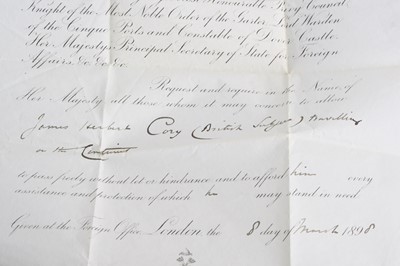 Honourable Privy Council,
Knight of the Most Noble Order of the Garter, Lord Warden
of the Cinque Ports and Constable of Dover Castle,
Her Majesty's Principal Secretary of State for Foreign
Affairs &c. &c. &c.
Request and require in the Name of
Her Majesty, all those whom it may concern to allow
James Herbert Cory (British Subject) travelling
on the Continent
to pass freely without let or hindrance and to afford him every
assistance and protection of which he may stand in need.
Given at the Foreign Office, London, the 8 day of March 1898